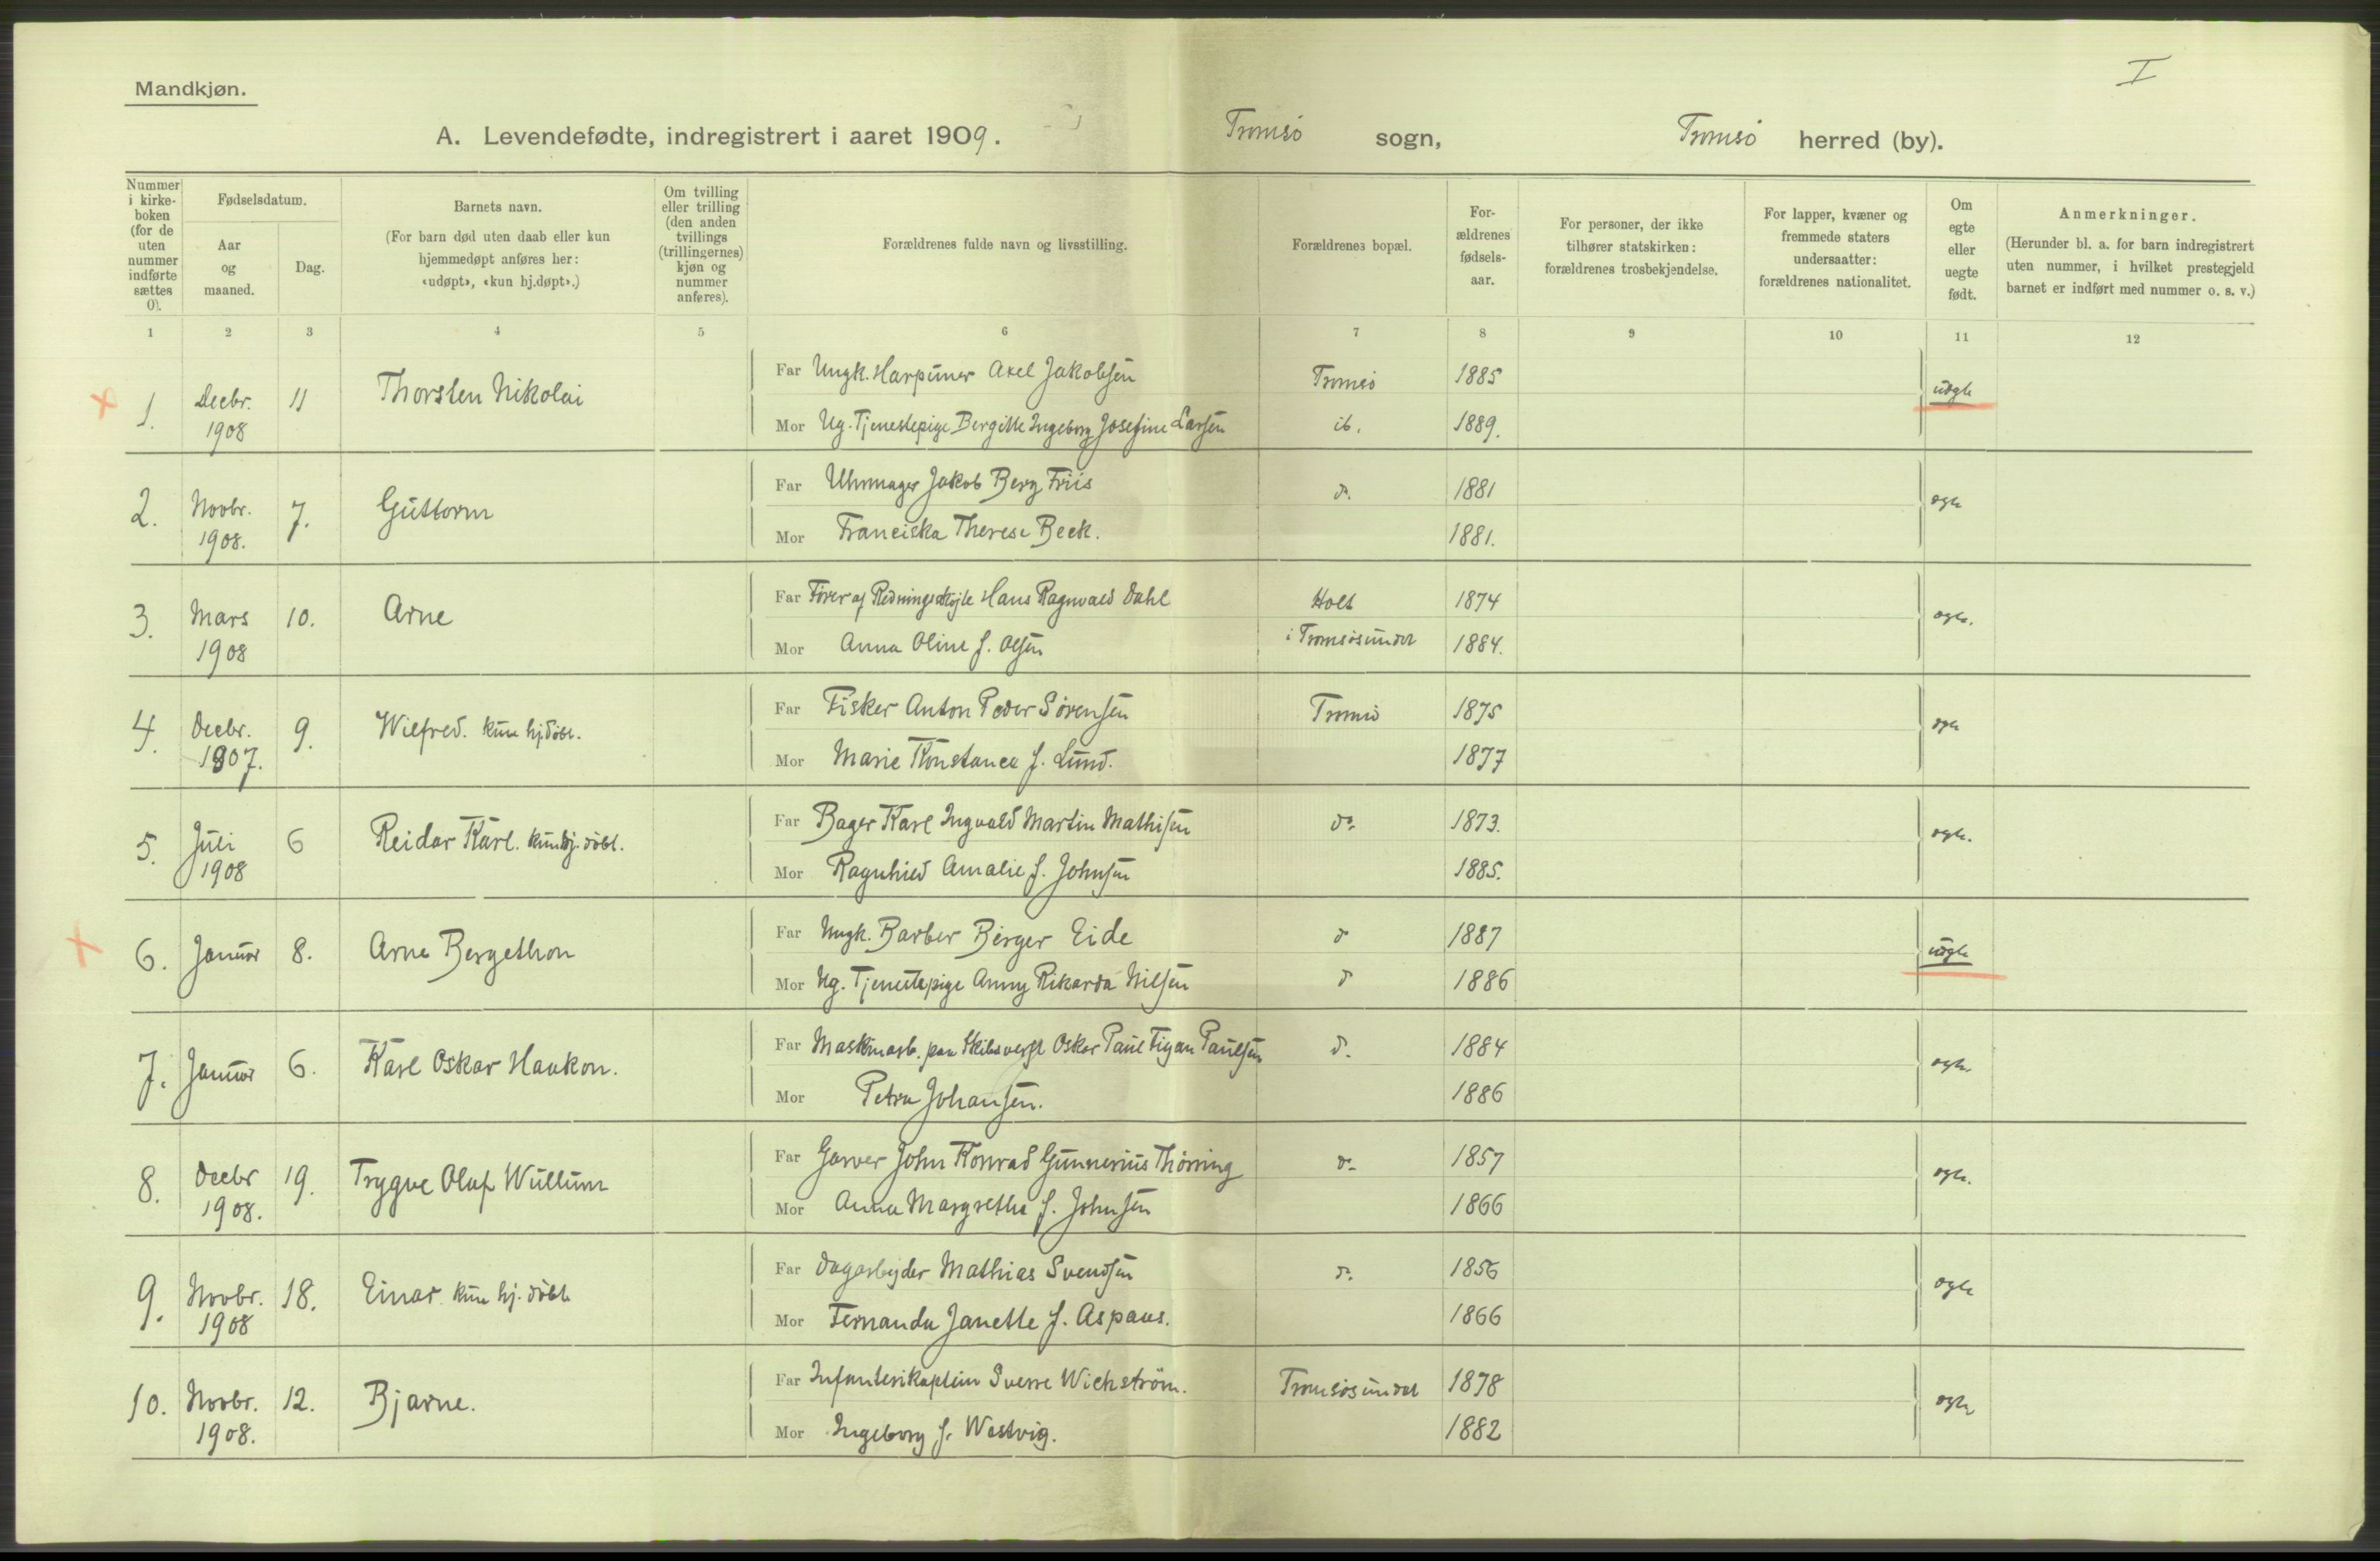 I
Mandkjøn.
A. Levendefødte, indregistrert i aaret 1909. Tromsø sogn, Tromsø herred (by).
Nummer i kirke-boken (for de uten nummer indførte sættes 0).
Fødselsdatum.
Aar og maaned.
Dag.
Barnets navn.
(For barn død uten daab eller kun hjemmedøpt anføres her: «udøpt», «kun hj.døpt».)
Om tvilling eller trilling (den anden tvillings (trillingernes) kjøn og nummer anføres).
Forældrenes fulde navn og livsstilling.
Forældrenes bopæl.
For-ældrenes fødsels-aar.
For personer, der ikke tilhører statskirken: forældrenes trosbekjendelse.
For lapper, kvæner og fremmede staters undersaatter: forældrenes nationalitet.
Om egte eller uegte født.
Anmerkninger.
(Herunder bl. a. for barn indregistrert uten nummer, i hvilket prestegjeld barnet er indført med nummer o. s. v.)
1 2 3 4 5 6 7 8 9 10 11 12
1. Decbr. 1908 11 Thorsten Nikolai
Far Ungk. Harpuner Axel Jakobsen Tromsø 1885 uægte
Mor Ug. Tjenestepige Bergitte Ingeborg Josefine Larsen ib. 1889.
2. Novbr. 1908. 7. Guttorm
Far Uhrmager Jakob Berg Friis do. 1881 ægte
Mor Franciska Therese Beck. 1881.
3. Mars 1908 10. Arne
Far Fører af Redningsskøjte Hans Ragnvald Dahl Holt 1874 ægte.
Mor Anna Oline f. Olsen i Tromsøsundet 1884.
4. Decbr. 1907. 9. Wilfred. kun hj.døbt.
Far Fisker Anton Peder Sørensen Tromsø 1875 ægte
Mor Marie Konstance f. Lund. 1877
5. Juli 1908 6 Reidar Karl. kun hj. døbt.
Far Bager Karl Ingvald Martin Mathisen do. 1873. ægte.
Mor Ragnhild Amalie f. Johnsen 1885.
6. Januar 8. Arne Bergethon
Far Ungk. Barber Birger Eide do 1887 uægte
Mor Ug. Tjenestepige Anny Rikarda Nilsen do 1886
7. Januar 6. Karl Oskar Haakon.
Far Maskinarb. paa Skibsverft Oskar Paul Paulsen do. 1884 ægte.
Mor Petra Johansen. 1886
8. Decbr 1908. 19. Trygve Olaf Wullum
Far Garver John Konrad Gunnerius Thørring do. 1857 ægte.
Mor Anna Margrethe f. Johnsen 1866
9. Novbr. 1908 18. Einar. kun hj. døbt
Far Dagarbejder Mathias Svendsen do. 1856 ægte
Mor Fernanda Janette f. Aspaas. 1866
10. Novbr. 1908. 12. Bjarne.
Far Infanterikaptein Sverre Wickstrøm. Tromsøsundet 1878 ægte
Mor Ingeborg f. Westvig. 1882